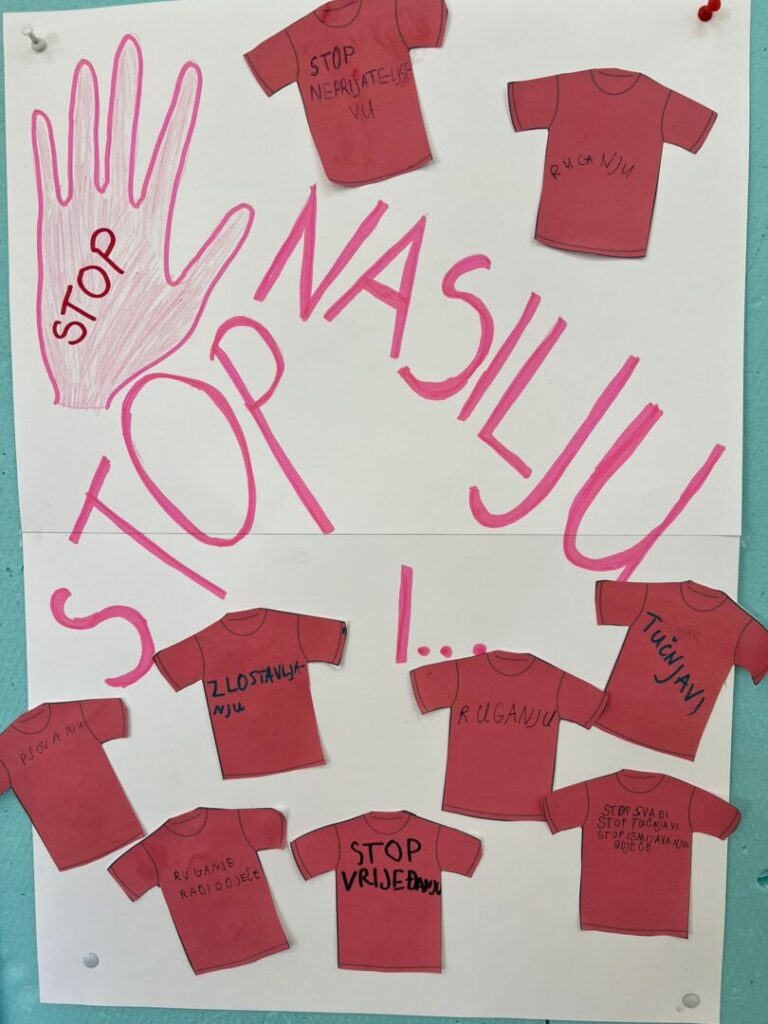 STOP
STOP
NEPRIJATELJST-
VU
RUGANJU
STOP NASILJU
I...
ZLOSTAVLJA-
NJU
RUGANJU
TUČNJAVI
PSOVANJU
RUGANJE
RADI ODJEĆE
STOP
VRIJEĐANJU
STOP SVAĐI
STOP TUČNJAVI
STOP ISMIJAVANJU
ODJEĆE